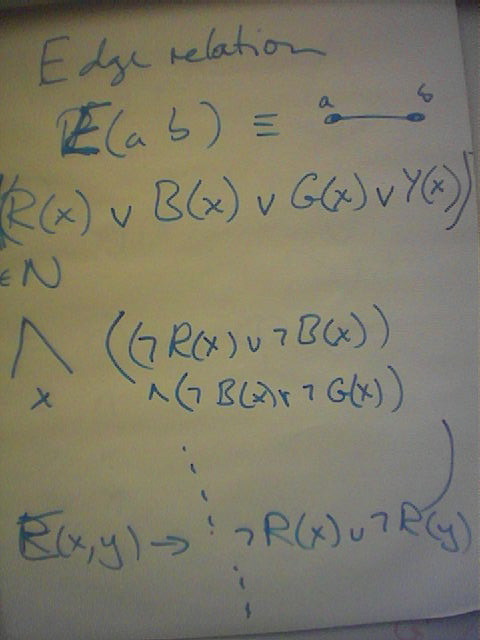 Edge relation
E(a b) ≡ a b
(R(x) ∨ B(x) ∨ G(x) ∨ Y(x))
∈ N
⋀ ((¬R(x) ∨ ¬B(x))
x ∧(¬B(x) ∨ ¬G(x))
E(x,y) → ¬R(x) ∨ ¬R(y)